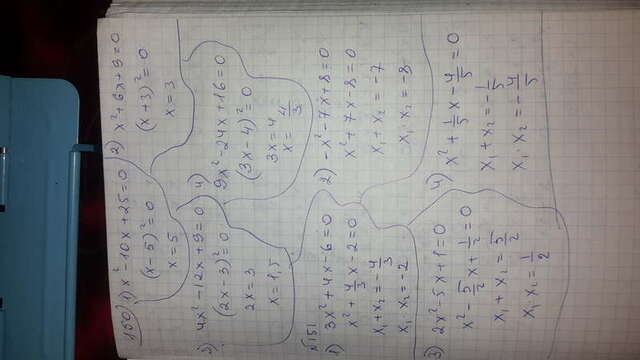 150) 1) x² - 10x + 25 = 0
(x - 5)² = 0
x = 5
2) x² + 6x + 9 = 0
(x + 3)² = 0
x = 3
3) 4x² - 12x + 9 = 0
(2x - 3)² = 0
2x = 3
x = 1,5
4) 9x² - 24x + 16 = 0
(3x - 4)² = 0
3x = 4
x = 4/3
№151
1) 3x² + 4x - 6 = 0
x² + 4/3 x - 2 = 0
x₁ + x₂ = - 4/3
x₁ · x₂ = -2
2) -x² - 7x + 8 = 0
x² + 7x - 8 = 0
x₁ + x₂ = -7
x₁ · x₂ = -8
3) 2x² - 5x + 1 = 0
x² - 5/2 x + 1/2 = 0
x₁ + x₂ = 5/2
x₁ · x₂ = 1/2
4) x² + 1/5 x - 4/5 = 0
x₁ + x₂ = - 1/5
x₁ · x₂ = - 4/5